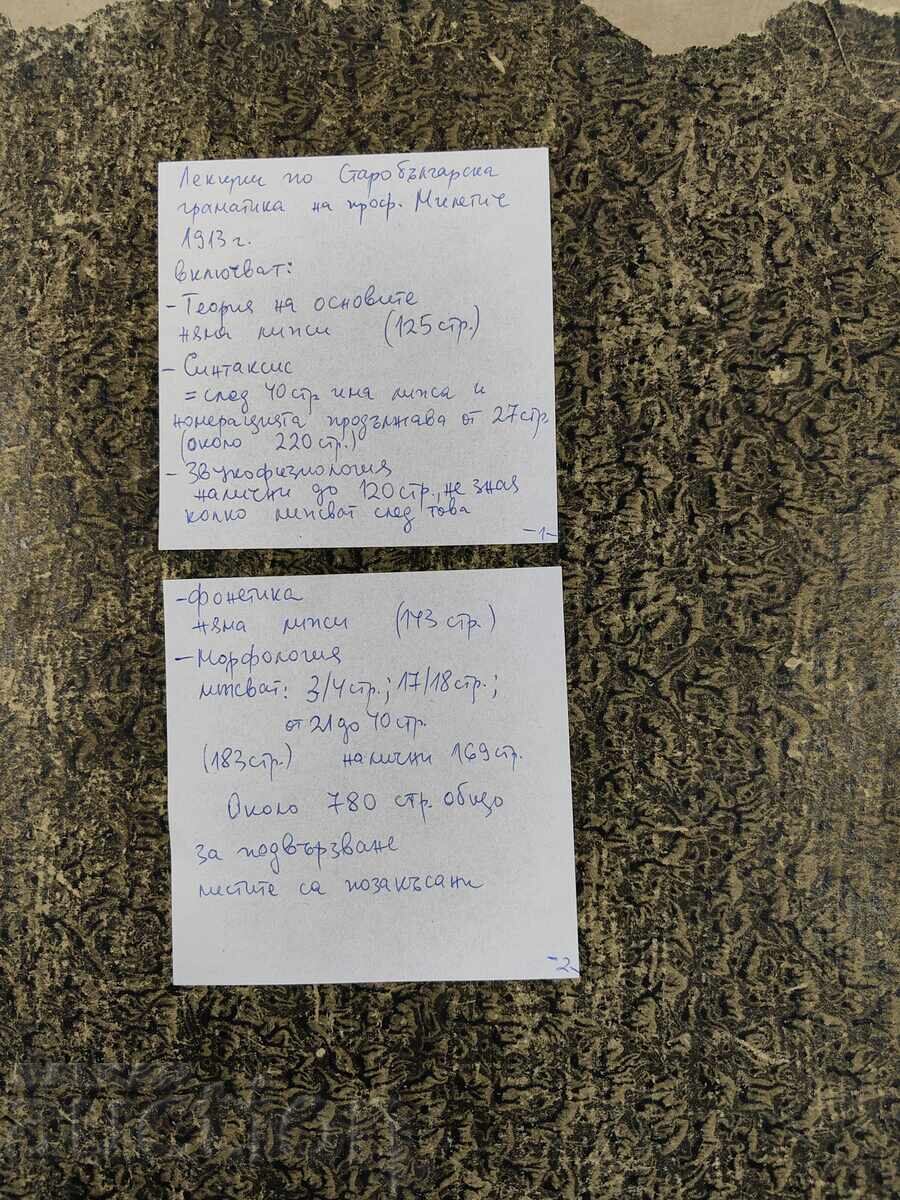 Лекции по Старобългарска
граматика на проф. Милетич
1913 г.
Включват:
- Теория на основите
няма липси (125 стр.)
- Синтаксис
= след 40 стр има липса и
номерацията продължава от 27 стр
(около 220 стр.)
- Звукофизиология
налични до 120 стр., не зная
колко липсват след това
-1-
- Фонетика
няма липси (143 стр.)
- Морфология
липсват: 3/4 стр.; 17/18 стр.;
от 21 до 40 стр.
(183 стр.) налични 169 стр.
Около 780 стр. общо
за подвързване
листите са позакъсани
-2-